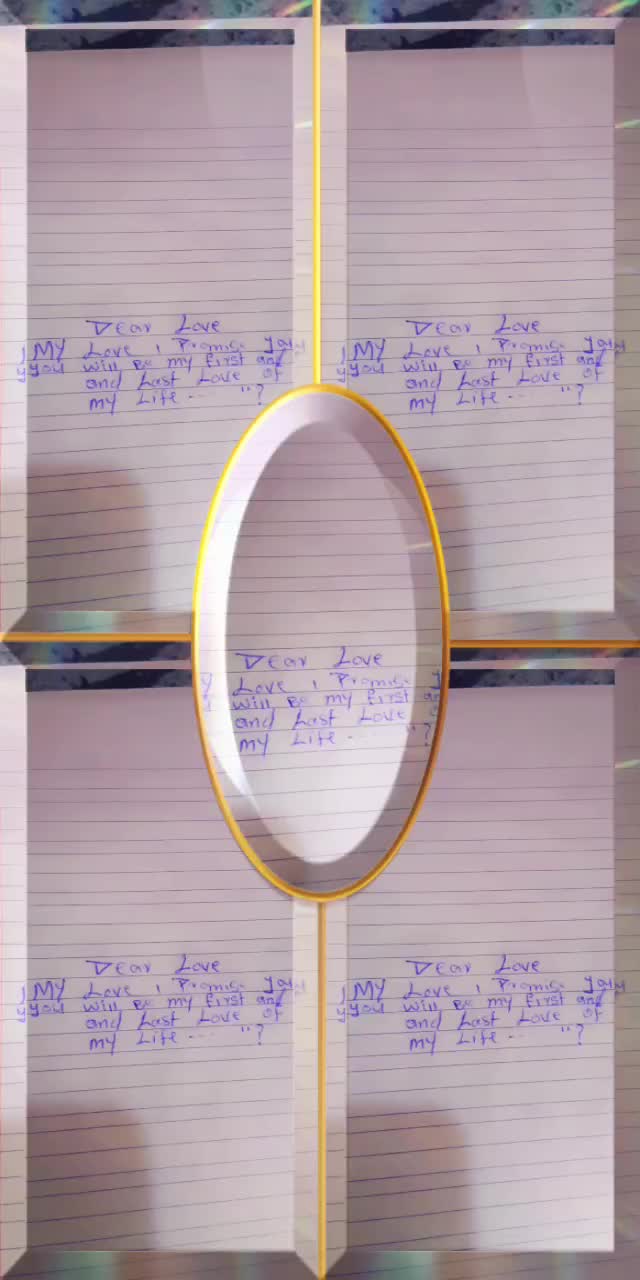 Dear Love
My Love, I Promise you
you will Be my first and
and Last Love of
my Life... "?
Dear Love
My Love, I Promise you
you will Be my first and
and Last Love of
my Life... "?
Dear Love
Love, I Promise
will Be my first
and Last Love
my Life... "?
Dear Love
My Love, I Promise you
you will Be my first and
and Last Love of
my Life... "?
Dear Love
My Love, I Promise you
you will Be my first and
and Last Love of
my Life... "?